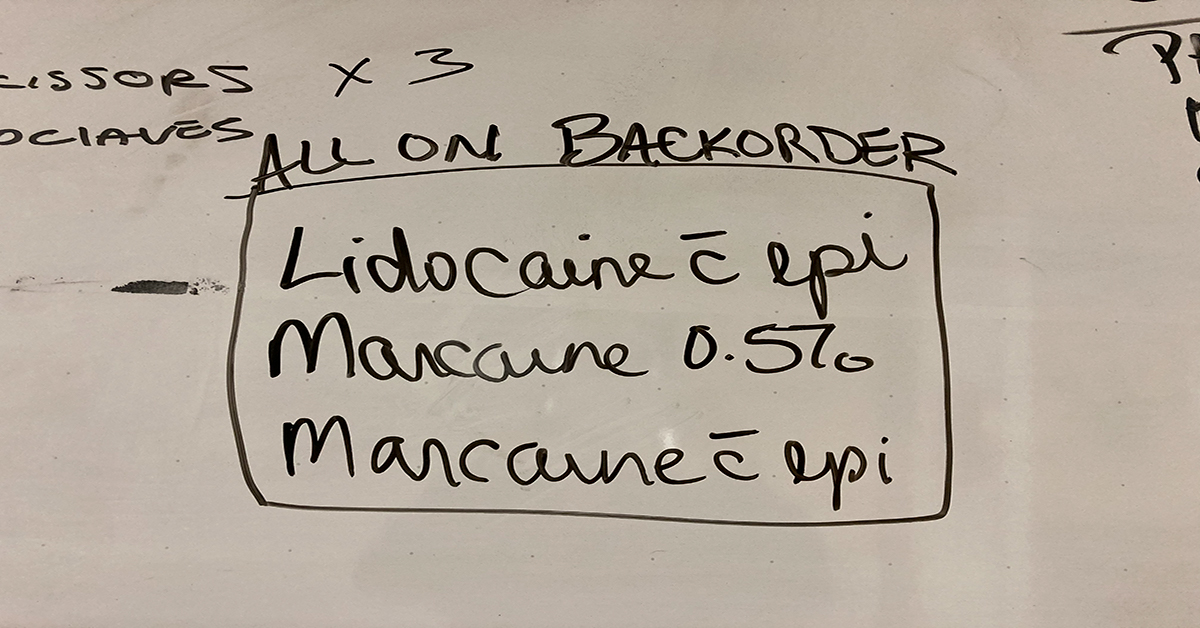 CISSORS x 3
OCLAVES
ALL ON BACKORDER
Lidocaine c̄ epi
Marcaine 0.5%
Marcaine c̄ epi